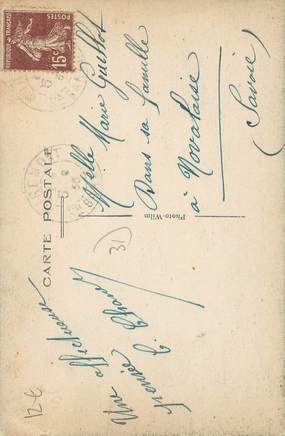 CARTE POSTALE
Une affectueuse
pensée
Melle Marie Guillot
Dans sa famille
à Novalaise
(Savoie)
Photo-Wilm
POSTES
15c
31
12€